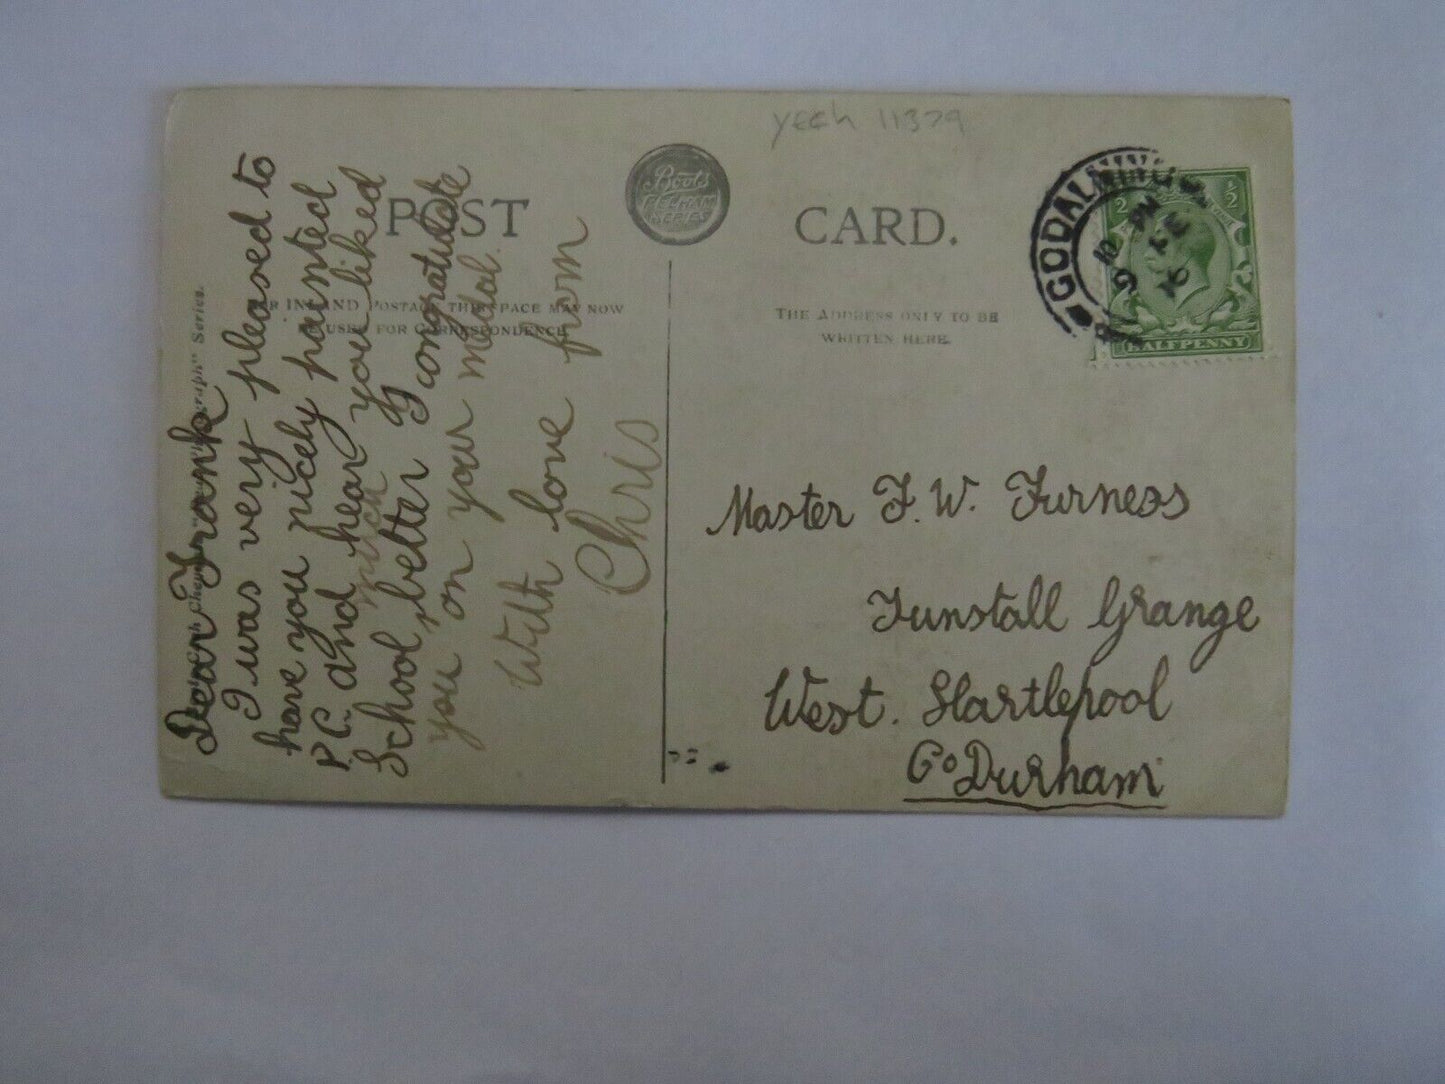 yeah 11379
POST
CARD.
Boots
PELHAM
SERIES
FOR INLAND POSTAGE THIS SPACE MAY NOW
BE USED FOR CORRESPONDENCE
THE ADDRESS ONLY TO BE
WRITTEN HERE.
GODALMING
16
½ ½
HALFPENNY
Dear Frank
I was very pleased to
have you nicely painted
P.C. and hear you liked
much
School, better I congratulate
you on your medal.
With love from
Chris
Master F. W. Furness
Tunstall Grange
West. Hartlepool
Co Durham
Series.